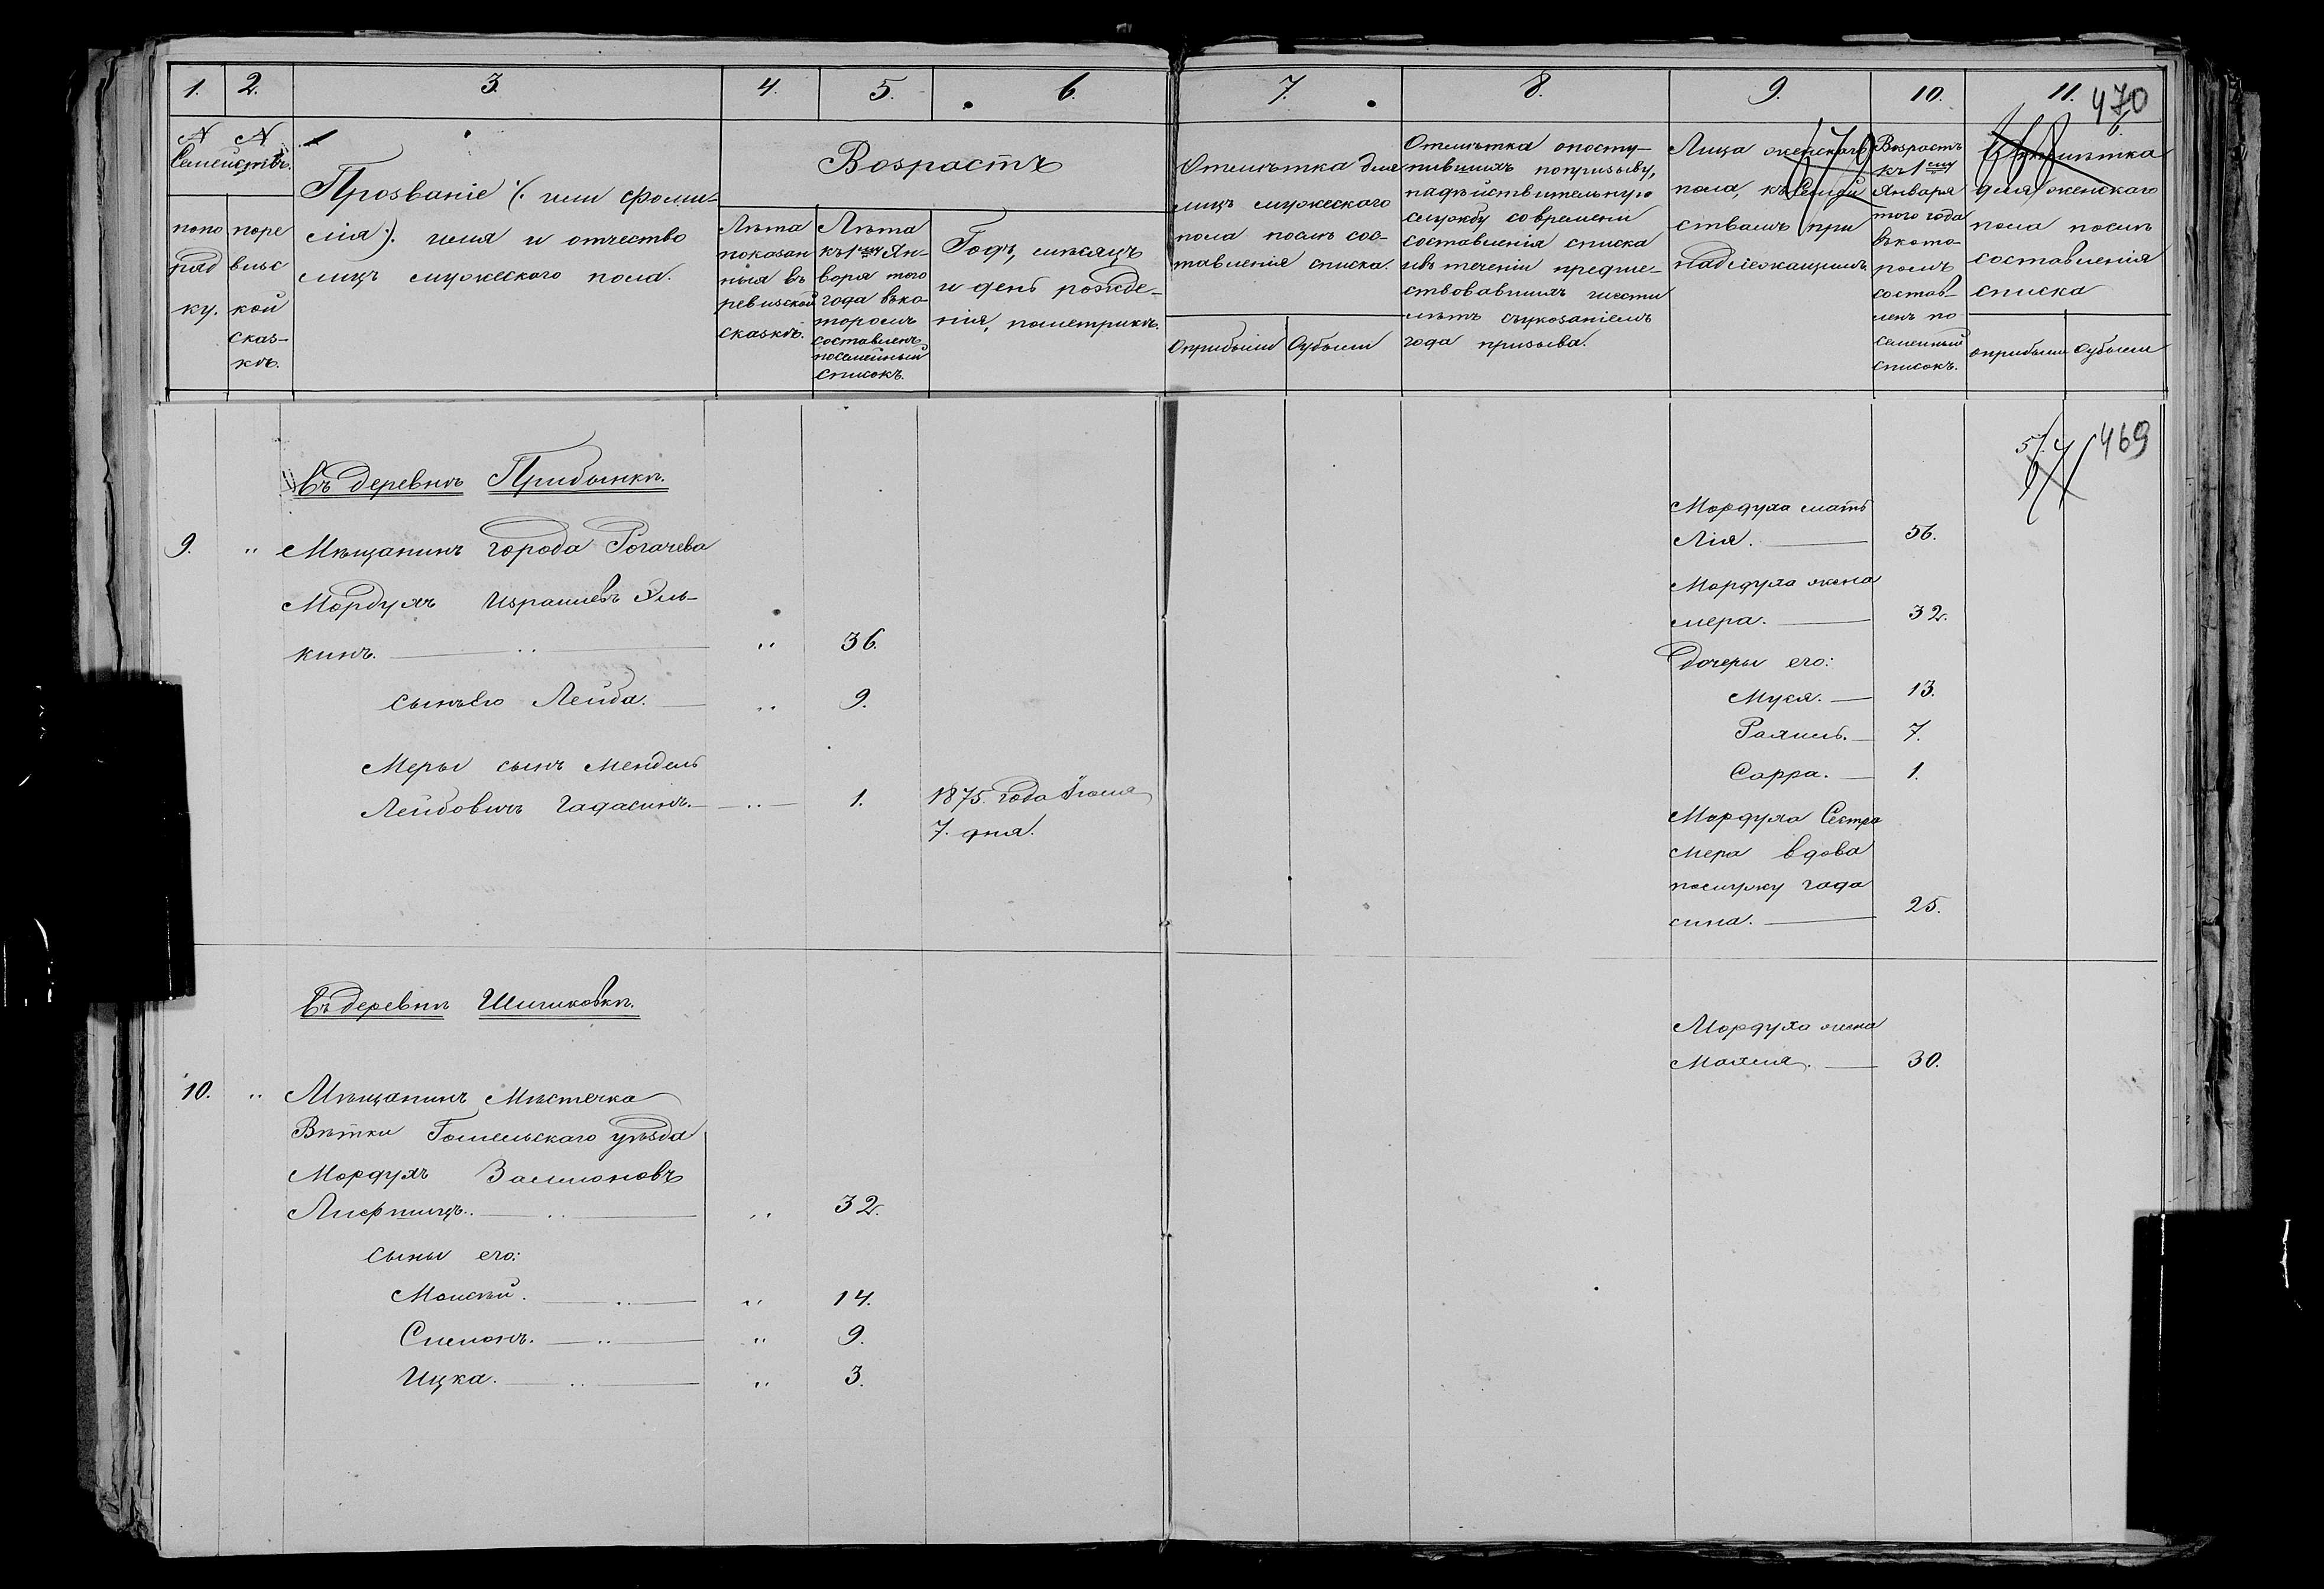 1.
2.
3.
4.
5.
6.
7.
8.
9.
10.
11.
470
N N
Семействъ.
попо
ряд
ку.
поре
визс
кой
сказ-
кѣ.
Прозваніе (: или фоми-
лія:). имя и отчество
лицъ мужескаго пола.
Возрастъ
Лѣта
показан
ныя въ
ревизской
сказкѣ.
Лѣта
къ 1му Ян-
воря того
года въко-
торомъ
составленъ
посемейный
списокъ.
Годъ, мѣсяцъ
и день рожде-
нія, пометрикѣ.
Отмѣтка для
лицъ мужескаго
пола послѣ сос-
тавленія списка.
оприбыли
Оубыли
Отмѣтка опосту-
пившихъ попризыву,
надѣйствительную
службу современи
составленія списка
ивъ теченіи предше-
ствовавшихъ шести
лѣтъ съуказаніемъ
года призыва.
Лица женскаго
пола, къ семей
ствамъ при
надлежащимъ
Возрастъ
къ 1му
Января
того года
въкото-
ромъ
состав-
ленъ по
семейный
списокъ.
Отмѣтка
для женскаго
пола послѣ
составленія
списка
оприбыли
Оубыли
469
Въ деревнѣ Прибынкѣ.
9. " Мѣщанинъ города Рогачева
Мордухъ Израилевъ Эль-
кинъ. " 36.
сынъ Его Лейба. " 9.
Меры сынъ Мендель
Лейбовичъ Гадасинъ. " 1. 1875. года Іюля
7. дня.
Мордуха мать
Лія. 56.
Мордуха жена
мера. 32.
дочеры его:
Муся. 13.
Рахиль. 7.
Сарра. 1.
Мордуха Сестра
мера вдова
помужу Гада
сина. 25.
Въ деревнѣ Шишковкѣ.
10. " Мѣщанинъ Мѣстечка
Вѣтки Гомельскаго уѣзда
Мордухъ Залмоновъ
Лифшицъ. " 32.
Сыны его:
Моисѣй. " 14.
Симонъ. " 9.
Ицка. " 3.
Мордуха жена
Махля. 30.